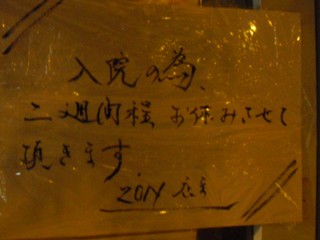 入院の為、
二週間程お休みさせて
頂きます
ZON 店主